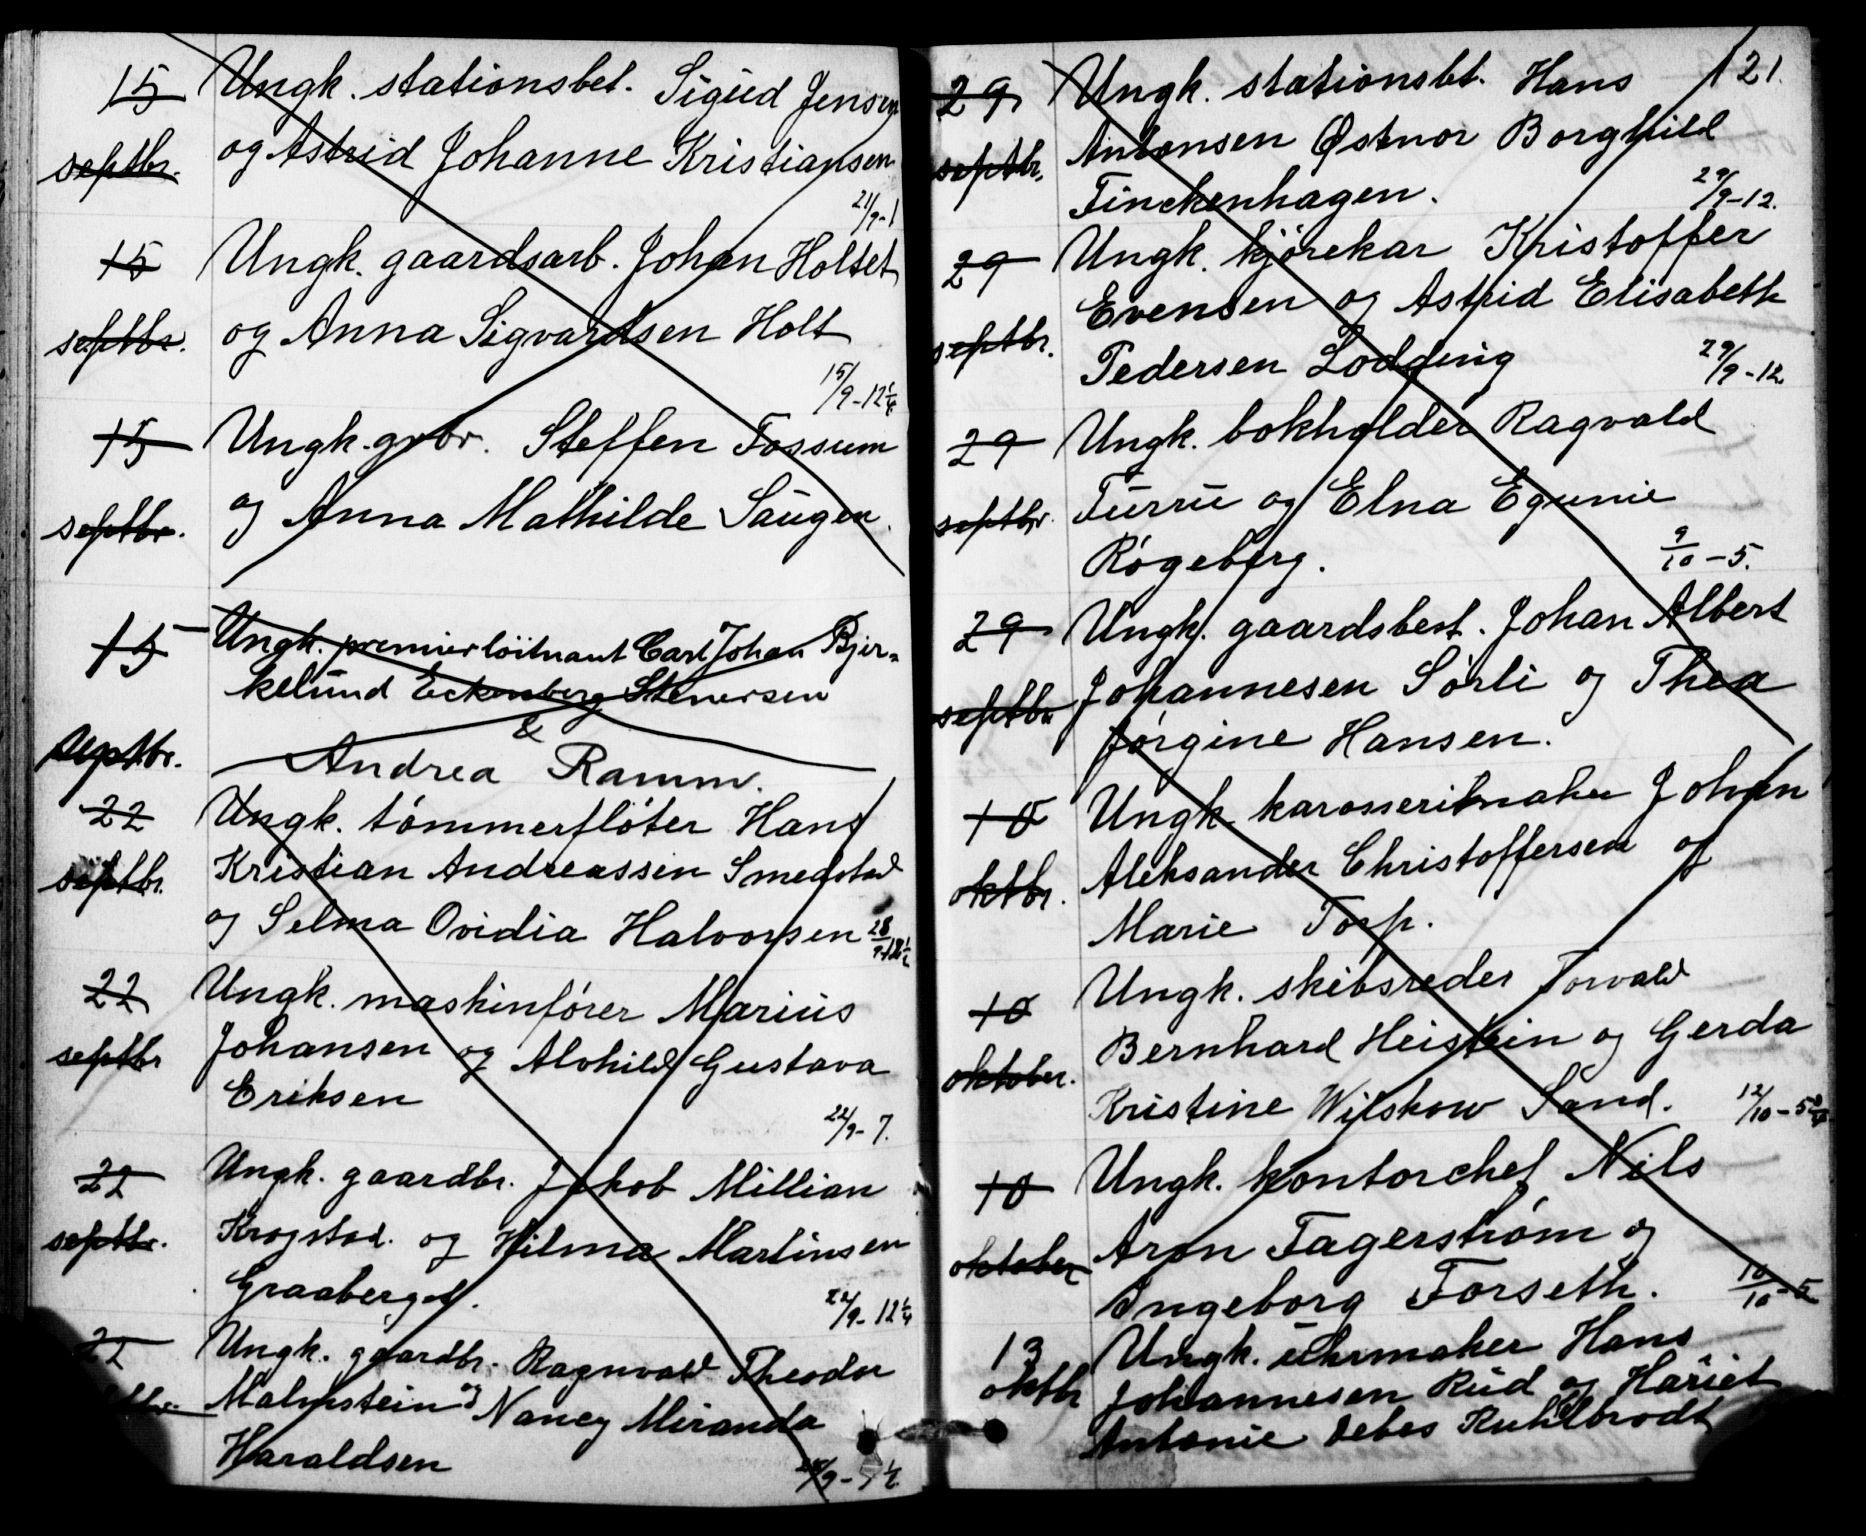 15 Ungk. stationsbet. Sigūd Jensen
septbr. og Astrid Johanne Kristiansen
21/9-1
15 Ungk. gaardsarb. Johan Holtet
septbr. og Anna Sigvardsen Holt
15/9-12 1/4
15 Ungk. grbr. Steffen Fossum
septbr. og Anna Mathilde Saūgen.
15 Ungk. premierlöitnant Carl Johan Bjer=
kelūnd Eckenberg Stenersen
&
septbr. Andrea Ramm.
22 Ungk. tómmerflóter Hans
septbr. Kristian Andreassen Smedstad
og Selma Ovidia Halvorsen 28/9
22 Ungk. maskinfórer Mariūs
septbr Johansen og Alvhild Gustava
Eriksen
22/9-7.
22 Ungk. gaardbr. Jakob Millian
septbr. Krogstad. og Hilma Martinsen
Graaberget.
22/9-12 1/4
22 Ungk. gaardbr. Ragnvald Theodor
Malmstein og Nancy Miranda
Haraldsen
121.
29 Ungk. stationsbt. Hans
septbr. Antonsen Østnor Borghild
Finckenhagen.
29/9-12.
29 Ungk. kjórekar Kristoffer
septbr. Evensen og Astrid Elisabeth
Pedersen Lodding
29/9-12
29 Ungk. bokholder Ragvald
septbr. Fūrrū og Elna Egunie
Rógeberg.
9/10-5.
29 Ungk. gaardsbest. Johan Albert
septbr Johannesen Sórli og Thea
Jórgine Hansen.
10 Ungk. karosserimaker Johan
oktbr. Aleksander Christoffersen og
Marie Torp.
10 Ungk. skibsreder Torvald
oktober. Bernhard Heistein og Gerda
Kristine Wilskow Sand.
12/10-5 3/4
10 Ungk. kontorchef Nils
oktober Aron Fagerstróm og
Ingeborg Forseth.
10/10-5
13 Ungk. ūhrmaker Hans
oktbr Johannesen Rūd og Hariet
Antonie Debes Kuhlbrodt